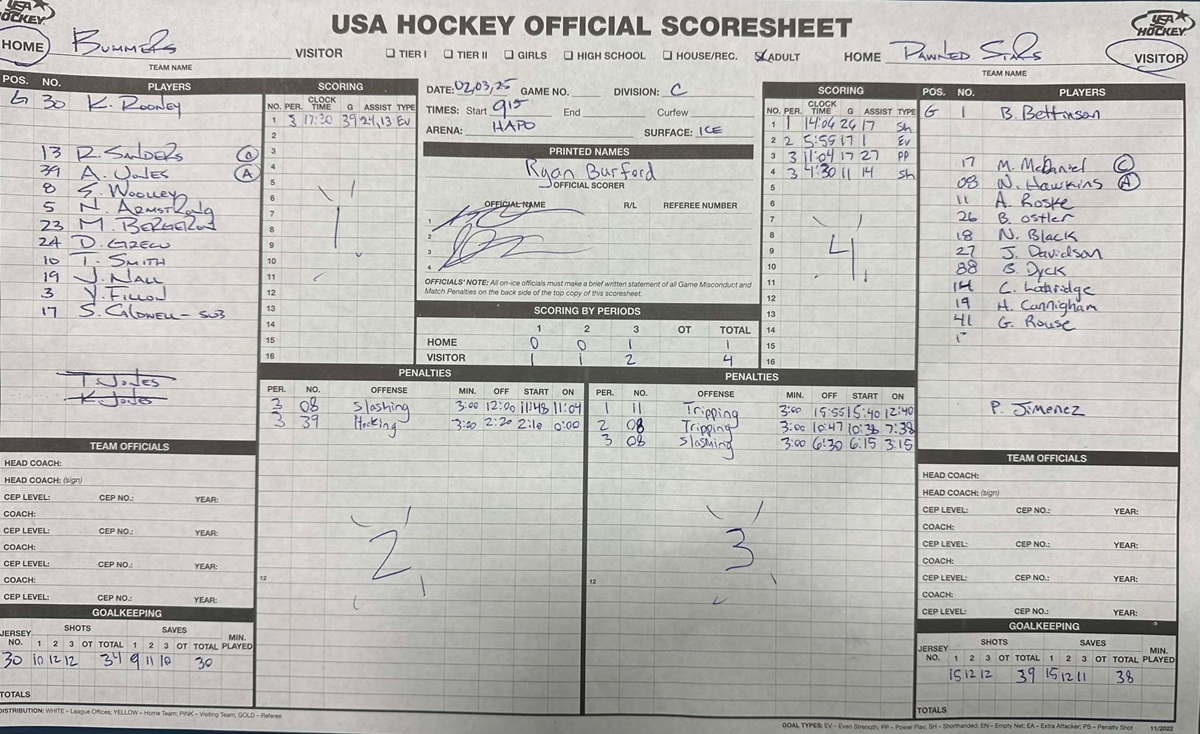 USA HOCKEY
USA HOCKEY OFFICIAL SCORESHEET
USA HOCKEY
HOME BUMMERS VISITOR ☐ TIER I ☐ TIER II ☐ GIRLS ☐ HIGH SCHOOL ☐ HOUSE/REC. ☒ ADULT HOME PAWNED STARS VISITOR
TEAM NAME TEAM NAME
POS. NO. PLAYERS
G 30 K. ROONEY
13 R. SANDERS A
39 A. JONES A
8 S. WOOLLEY
5 N. ARMSTRONG
23 M. BERGERON
24 D. GREW
10 T. SMITH
19 J. NALL
3 V. FILLON
17 S. CALDWELL - SUB
T. JONES
K. JONES
TEAM OFFICIALS
HEAD COACH:
HEAD COACH: (sign)
CEP LEVEL: CEP NO.: YEAR:
COACH:
CEP LEVEL: CEP NO.: YEAR:
COACH:
CEP LEVEL: CEP NO.: YEAR:
COACH:
CEP LEVEL: CEP NO.: YEAR:
GOALKEEPING
JERSEY NO. SHOTS SAVES MIN. PLAYED
1 2 3 OT TOTAL 1 2 3 OT TOTAL
30 10 12 12 34 9 11 10 30
TOTALS
SCORING
NO. PER. CLOCK TIME G ASSIST TYPE
1 3 17:30 39 24,13 EV
2
3
4
5
6
7
8
9
10
11
12
13
14
15
16
1
DATE: 02,03,25 GAME NO. DIVISION: C
TIMES: Start 915 End Curfew
ARENA: HAPO SURFACE: ICE
PRINTED NAMES
Ryan Burford
OFFICIAL SCORER
OFFICIAL NAME R/L REFEREE NUMBER
1
2
3
4
OFFICIALS' NOTE: All on-ice officials must make a brief written statement of all Game Misconduct and
Match Penalties on the back side of the top copy of this scoresheet.
SCORING BY PERIODS
1 2 3 OT TOTAL
HOME 0 0 1 1
VISITOR 1 1 2 4
SCORING
NO. PER. CLOCK TIME G ASSIST TYPE
1 1 14:04 26 17 Sh
2 2 5:55 17 1 Ev
3 3 11:04 17 27 PP
4 3 4:30 11 14 Sh
5
6
7
8
9
10
11
12
13
14
15
16
4
PENALTIES
PER. NO. OFFENSE MIN. OFF START ON
3 08 Slashing 3:00 12:00 11:48 11:04
3 39 Hooking 3:00 2:20 2:10 0:00
12
2
PENALTIES
PER. NO. OFFENSE MIN. OFF START ON
1 11 Tripping 3:00 15:55 15:40 12:40
2 08 Tripping 3:00 10:47 10:38 7:38
3 08 Slashing 3:00 6:30 6:15 3:15
12
3
POS. NO. PLAYERS
G 1 B. Bettinson
17 M. McDaniel C
08 N. Hawkins A
11 A. Roske
26 B. Ostler
18 N. Black
27 J. Davidson
88 B. Dyck
14 C. Lothridge
19 H. Cannigham
41 G. Rouse
P. Jimenez
TEAM OFFICIALS
HEAD COACH:
HEAD COACH: (sign)
CEP LEVEL: CEP NO.: YEAR:
COACH:
CEP LEVEL: CEP NO.: YEAR:
COACH:
CEP LEVEL: CEP NO.: YEAR:
COACH:
CEP LEVEL: CEP NO.: YEAR:
GOALKEEPING
JERSEY NO. SHOTS SAVES MIN. PLAYED
1 2 3 OT TOTAL 1 2 3 OT TOTAL
15 12 12 39 15 12 11 38
TOTALS
DISTRIBUTION: WHITE – League Offices; YELLOW – Home Team; PINK – Visiting Team; GOLD – Referee
GOAL TYPES: EV – Even Strength; PP – Power Play; SH – Shorthanded; EN – Empty Net; EA – Extra Attacker; PS – Penalty Shot 11/2022